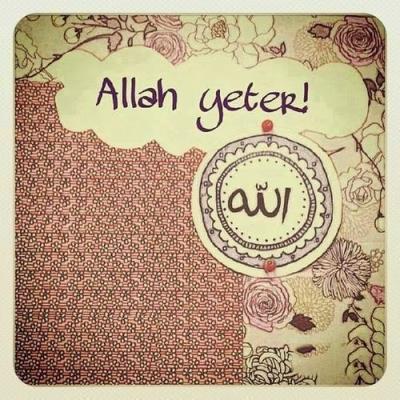 Allah yeter!
الله